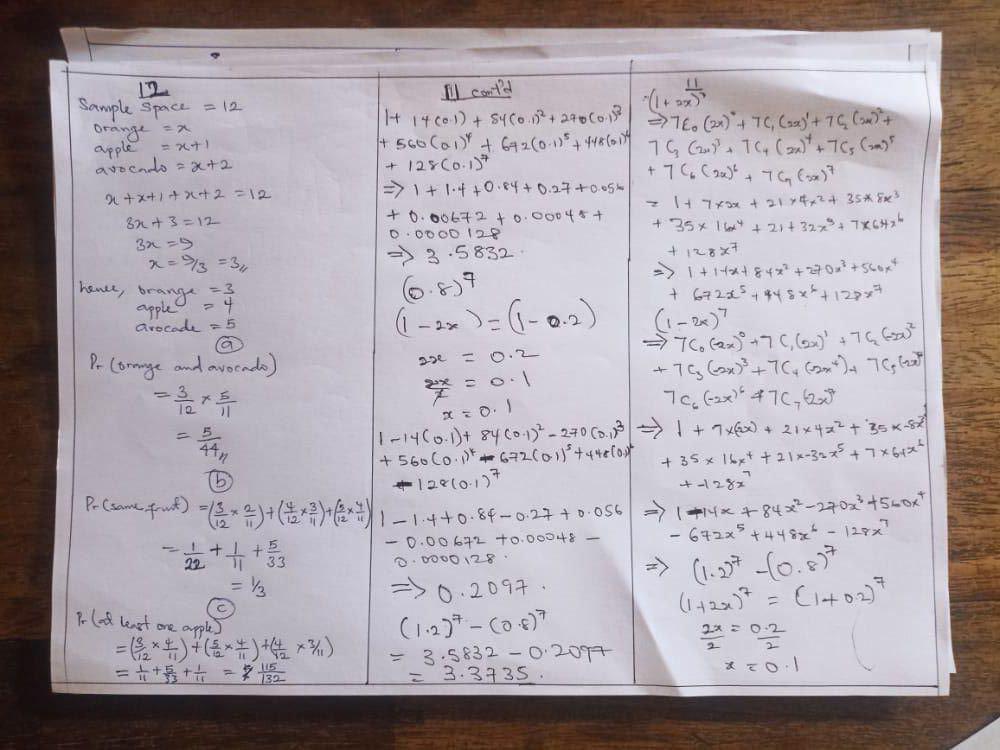 12
Sample space = 12
orange = x
apple = x+1
avocado = x+2
x + x+1 + x+2 = 12
3x + 3 = 12
3x = 9
x = 9/3 = 3,,
hence, orange = 3
apple = 4
avocade = 5
(a)
Pr (orange and avocado)
= 3/12 × 5/11
= 5/44,,
(b)
Pr (same fruit) = (3/12 × 2/11) + (4/12 × 3/11) + (5/12 × 4/11)
= 1/22 + 1/11 + 5/33
= 1/3
(c)
Pr (at least one apple)
= (3/12 × 4/11) + (5/12 × 4/11) + (4/12 × 3/11)
= 1/11 + 5/33 + 1/11 = 115/132
11 cont'd
1 + 14(0.1) + 84(0.1)² + 270(0.1)³
+ 560(0.1)⁴ + 672(0.1)⁵ + 448(0.1)⁶
+ 128(0.1)⁷
=> 1 + 1.4 + 0.84 + 0.27 + 0.056
+ 0.00672 + 0.00048 +
0.0000128
=> 3.5832.
(0.8)⁷
(1 - 2x) = (1 - 0.2)
2x = 0.2
2x/2 = 0.1
x = 0.1
1 - 14(0.1) + 84(0.1)² - 270(0.1)³
+ 560(0.1)⁴ - 672(0.1)⁵ + 448(0.1)⁶
- 128(0.1)⁷
1 - 1.4 + 0.84 - 0.27 + 0.056
- 0.00672 + 0.00048 -
0.0000128.
=> 0.2097.
(1.2)⁷ - (0.8)⁷
= 3.5832 - 0.2097
= 3.3735.
11
(1 + 2x)⁷
=> 7C₀(2x)⁰ + 7C₁(2x)¹ + 7C₂(2x)² +
7C₃(2x)³ + 7C₄(2x)⁴ + 7C₅(2x)⁵
+ 7C₆(2x)⁶ + 7C₇(2x)⁷
= 1 + 7×2x + 21×4x² + 35×8x³
+ 35×16x⁴ + 21+32x⁵ + 7×64x⁶
+ 128x⁷
=> 1 + 14x + 84x² + 270x³ + 560x⁴
+ 672x⁵ + 448x⁶ + 128x⁷
(1 - 2x)⁷
=> 7C₀(-2x)⁰ + 7C₁(-2x)¹ + 7C₂(-2x)²
+ 7C₃(-2x)³ + 7C₄(-2x⁴) + 7C₅(-2x)⁵
7C₆(-2x)⁶ + 7C₇(-2x)⁷
=> 1 + 7×(-2x) + 21×4x² + 35×-8x³
+ 35×16x⁴ + 21×-32x⁵ + 7×64x⁶
+ -128x⁷
=> 1 - 14x + 84x² - 270x³ + 560x⁴
- 672x⁵ + 448x⁶ - 128x⁷
=> (1.2)⁷ - (0.8)⁷
(1+2x)⁷ = (1+0.2)⁷
2x/2 = 0.2/2
x = 0.1